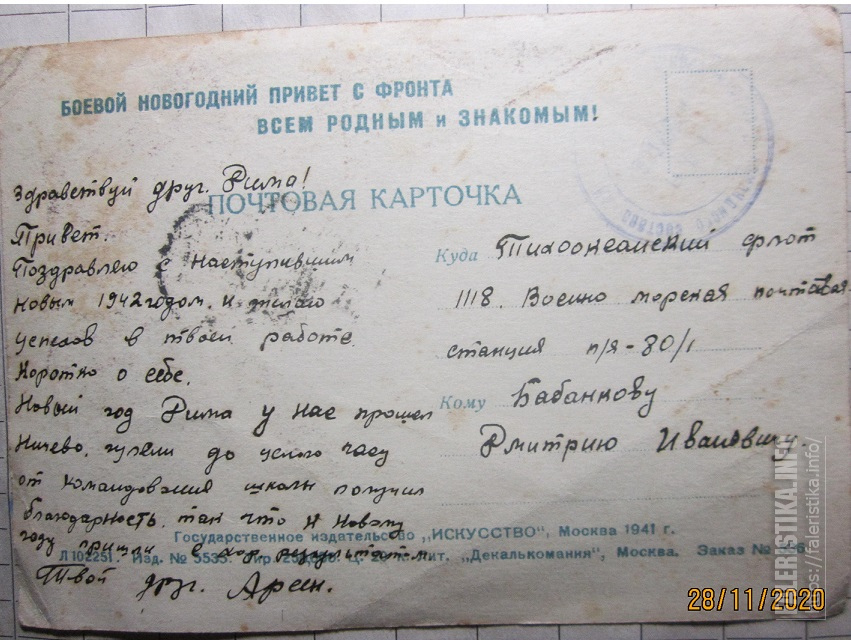 БОЕВОЙ НОВОГОДНИЙ ПРИВЕТ С ФРОНТА
ВСЕМ РОДНЫМ и ЗНАКОМЫМ!
ПОЧТОВАЯ КАРТОЧКА
Здравствуй друг. Рима!
Привет.
Поздравляю с наступившим
новым 1942 годом. и желаю
успехов в твоей работе.
Коротко о себе.
Новый год Рима у нас прошел
ничево, гуляли до
от командования школы получил
благодарность. так что к Новому
году пришли с хор. результатом
Твой друг. Арсен.
Куда Тихоокеанский флот
1118. Военно морская почтовая
станция п/я-80/1
Кому Бабанкову
Дмитрию Ивановичу.
Государственное издательство „ИСКУССТВО", Москва 1941 г.
Л 102251. Изд. № 5535. Тир. Ц. 20 к. Лит. „Декалькомания", Москва. Заказ №
FALERISTIKA.INFO
https://faleristika.info/
28/11/2020